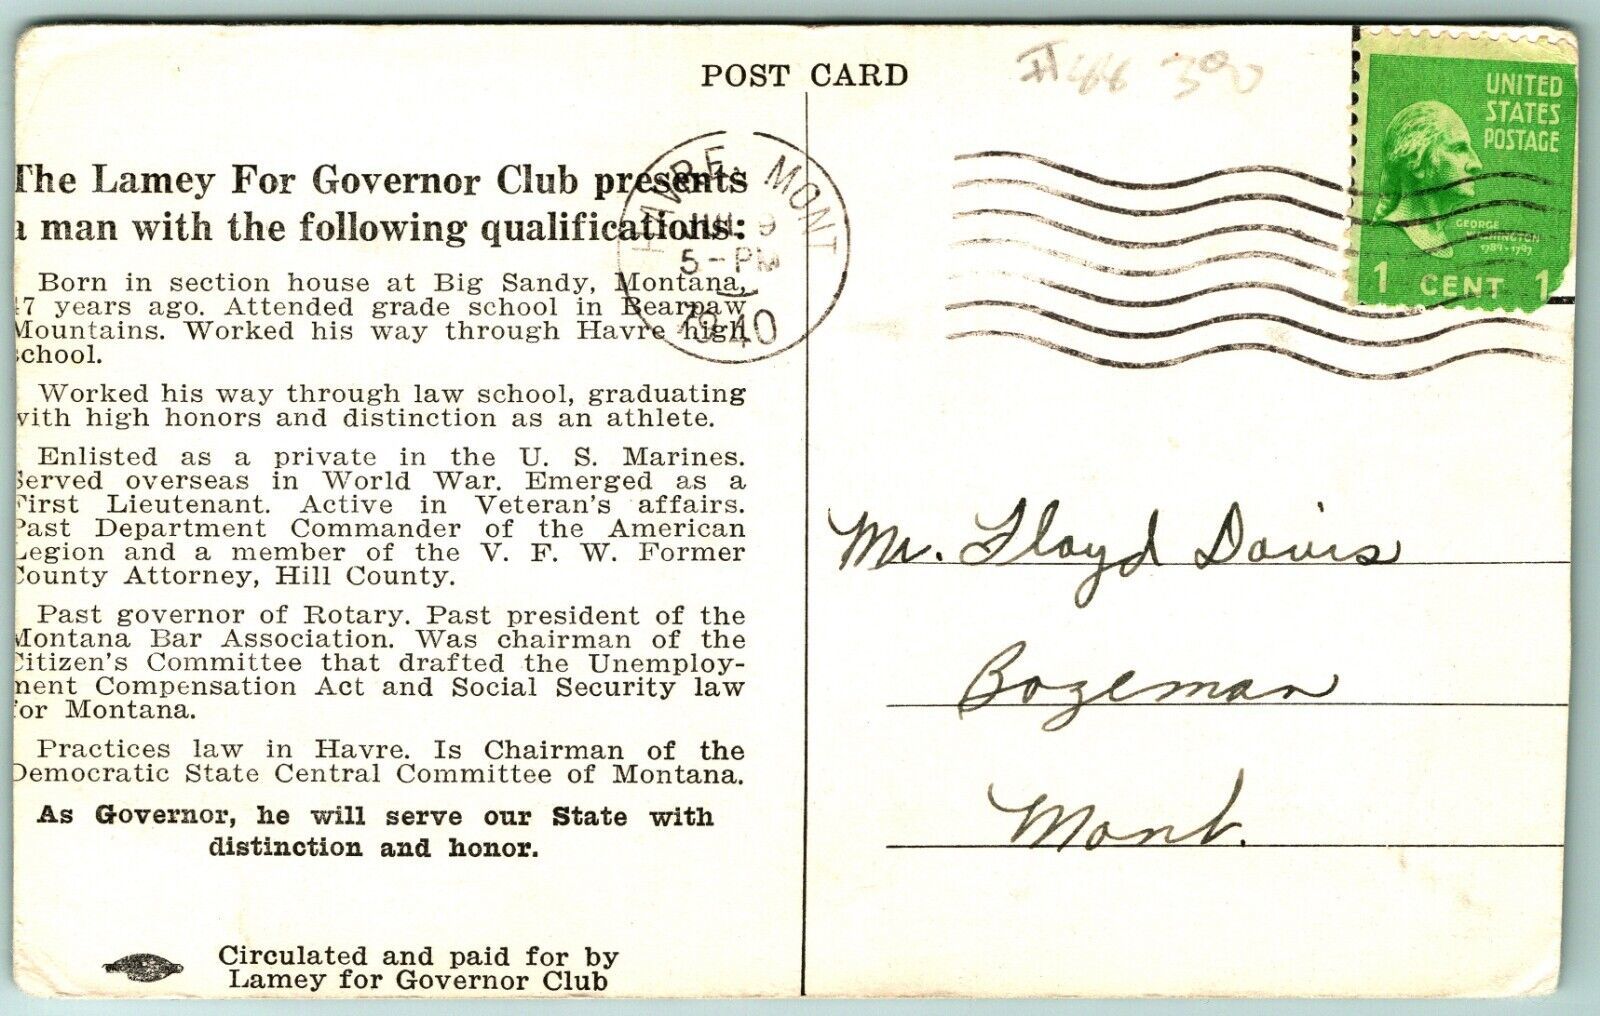 POST CARD
The Lamey For Governor Club presents
a man with the following qualifications:
Born in section house at Big Sandy, Montana,
47 years ago. Attended grade school in Bearpaw
Mountains. Worked his way through Havre high
school.
Worked his way through law school, graduating
with high honors and distinction as an athlete.
Enlisted as a private in the U. S. Marines.
Served overseas in World War. Emerged as a
First Lieutenant. Active in Veteran's affairs.
Past Department Commander of the American
Legion and a member of the V. F. W. Former
County Attorney, Hill County.
Past governor of Rotary. Past president of the
Montana Bar Association. Was chairman of the
Citizen's Committee that drafted the Unemploy-
ment Compensation Act and Social Security law
for Montana.
Practices law in Havre. Is Chairman of the
Democratic State Central Committee of Montana.
As Governor, he will serve our State with
distinction and honor.
Circulated and paid for by
Lamey for Governor Club
HAVRE, MONT
9
5-PM
1940
300
UNITED
STATES
POSTAGE
GEORGE
WASHINGTON
1789-1797
1 CENT 1
Mr. Floyd Davis
Bozeman
Mont.